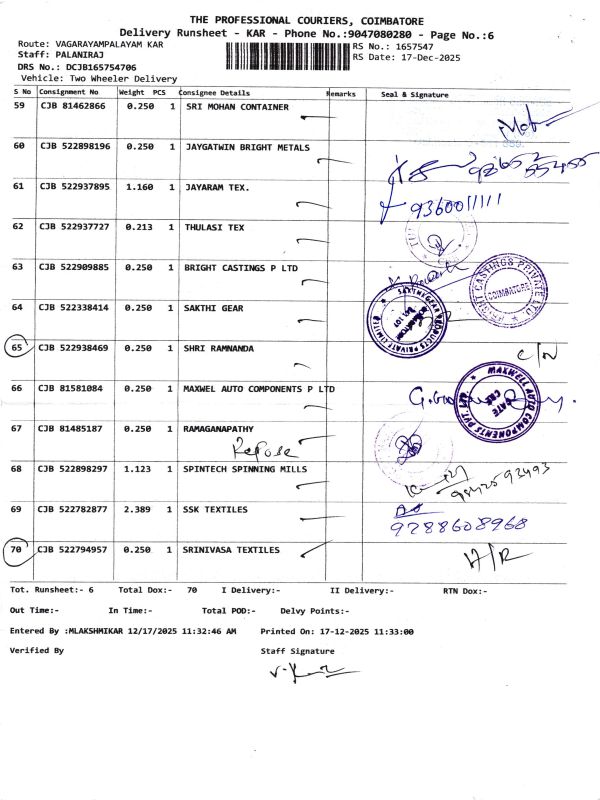 THE PROFESSIONAL COURIERS, COIMBATORE
Delivery Runsheet - KAR - Phone No.:9047080280 - Page No.:6
Route: VAGARAYAMPALAYAM KAR RS No.: 1657547
Staff: PALANIRAJ RS Date: 17-Dec-2025
DRS No.: DCJB165754706
Vehicle: Two Wheeler Delivery
S No Consignment No Weight PCS Consignee Details Remarks Seal & Signature
59 CJB 81462866 0.250 1 SRI MOHAN CONTAINER
60 CJB 522898196 0.250 1 JAYGATWIN BRIGHT METALS
61 CJB 522937895 1.160 1 JAYARAM TEX.
9360011111
62 CJB 522937727 0.213 1 THULASI TEX
63 CJB 522909885 0.250 1 BRIGHT CASTINGS P LTD
BRIGHT CASTINGS PRIVATE LTD. COIMBATORE
64 CJB 522338414 0.250 1 SAKTHI GEAR
SAKTHI GEAR PRODUCTS PRIVATE LIMITED
65 CJB 522938469 0.250 1 SHRI RAMNANDA
C/N
66 CJB 81581084 0.250 1 MAXWEL AUTO COMPONENTS P LTD
MAXWELL AUTO COMPONENTS PVT. LTD. GATE
67 CJB 81485187 0.250 1 RAMAGANAPATHY
Refose
68 CJB 522898297 1.123 1 SPINTECH SPINNING MILLS
9842593493
69 CJB 522782877 2.389 1 SSK TEXTILES
9288608968
70 CJB 522794957 0.250 1 SRINIVASA TEXTILES
H/R
Tot. Runsheet:- 6 Total Dox:- 70 I Delivery:- II Delivery:- RTN Dox:-
Out Time:- In Time:- Total POD:- Delvy Points:-
Entered By :MLAKSHMIKAR 12/17/2025 11:32:46 AM Printed On: 17-12-2025 11:33:00
Verified By Staff Signature